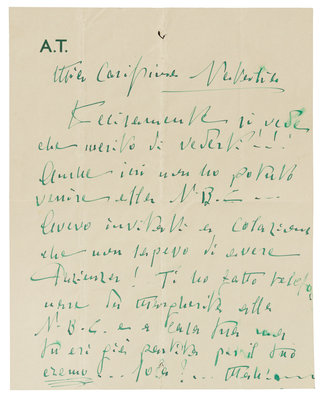 A.T.
Mia Carissima
Decisamente si vede
che merito di vederti!!!
Anche ieri non ho potuto
venire alla N.B.C. –
Avevo inviti a colazione
che non sapevo di avere
Ti ho fatto
da Margherita alla
N.B.C. e a casa tua ma
tu eri già partita per il tuo
eremo ... sola? ...